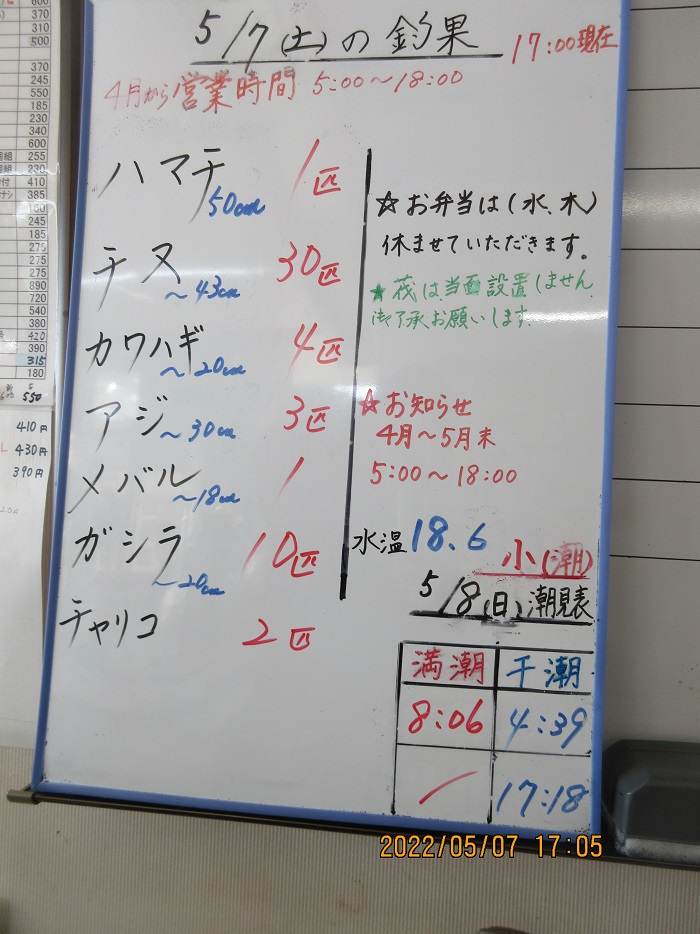 5/7(土)の釣果
17:00現在
4月から営業時間 5:00～18:00
ハマチ 50cm 1匹
チヌ ～43cm 30匹
カワハギ ～20cm 4匹
アジ ～30cm 3匹
メバル ～18cm 1
ガシラ ～20cm 10匹
チャリコ 2匹
☆お弁当は(水、木)
休ませていただきます。
★筏は当面設置しません
御了承お願いします
☆お知らせ
4月～5月末
5:00～18:00
水温 18.6
小(潮)
5/8(日)潮見表
満潮 干潮
8:06 4:39
／ 17:18
370
245
550
185
230
340
600
255
230
410
385
245
185
275
275
275
890
720
540
380
420
390
315
180
550
410円
430円
390円
2022/05/07 17:05